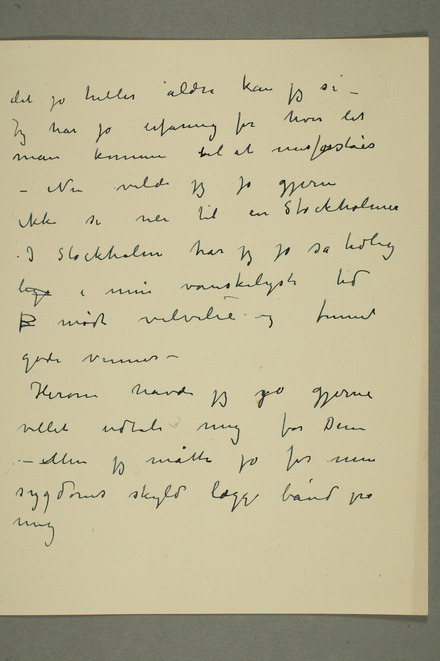 det jo heller aldri kan jeg si –
Jeg har jo erfaring for hvor let
man kommer til at misforståes
– Nu vilde jeg jo gjerne
ikke si nei til en Stockholmer
I Stockholm har jeg jo så tidlig
i min vanskeligste tid
mødt velvilie og funnet
gode venner –
Herom havde jeg jo gjerne
villet udtale mig for Dem
– Men jeg måtte jo for min
sygdoms skyld lægge bånd på
mig